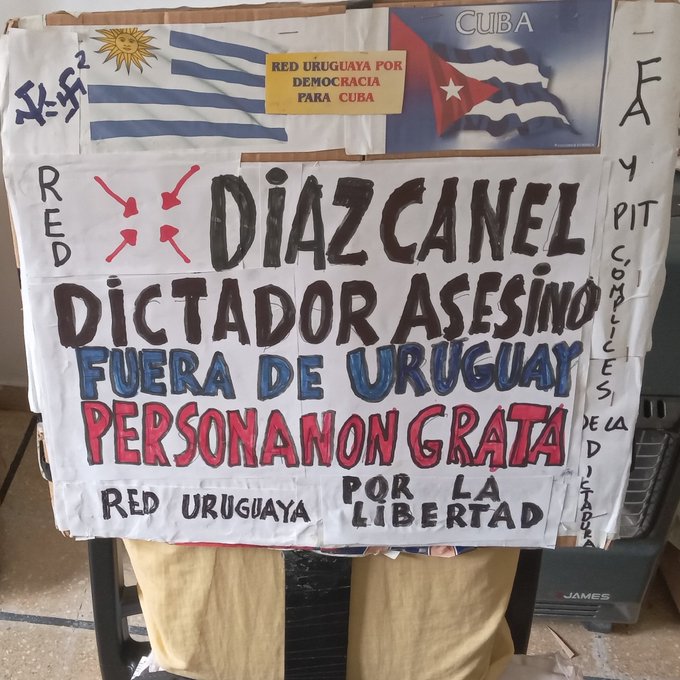 CUBA
RED URUGUAYA POR
DEMOCRACIA
PARA CUBA
RED
DiAZ CANEL
DICTADOR ASESiNO
FUERA DE URUGUAY
PERSONA NON GRATA
RED URUGUAYA
POR LA
LIBERTAD
FA
Y
PIT
CÓMPLICES
DE LA
DICTADURA
JAMES